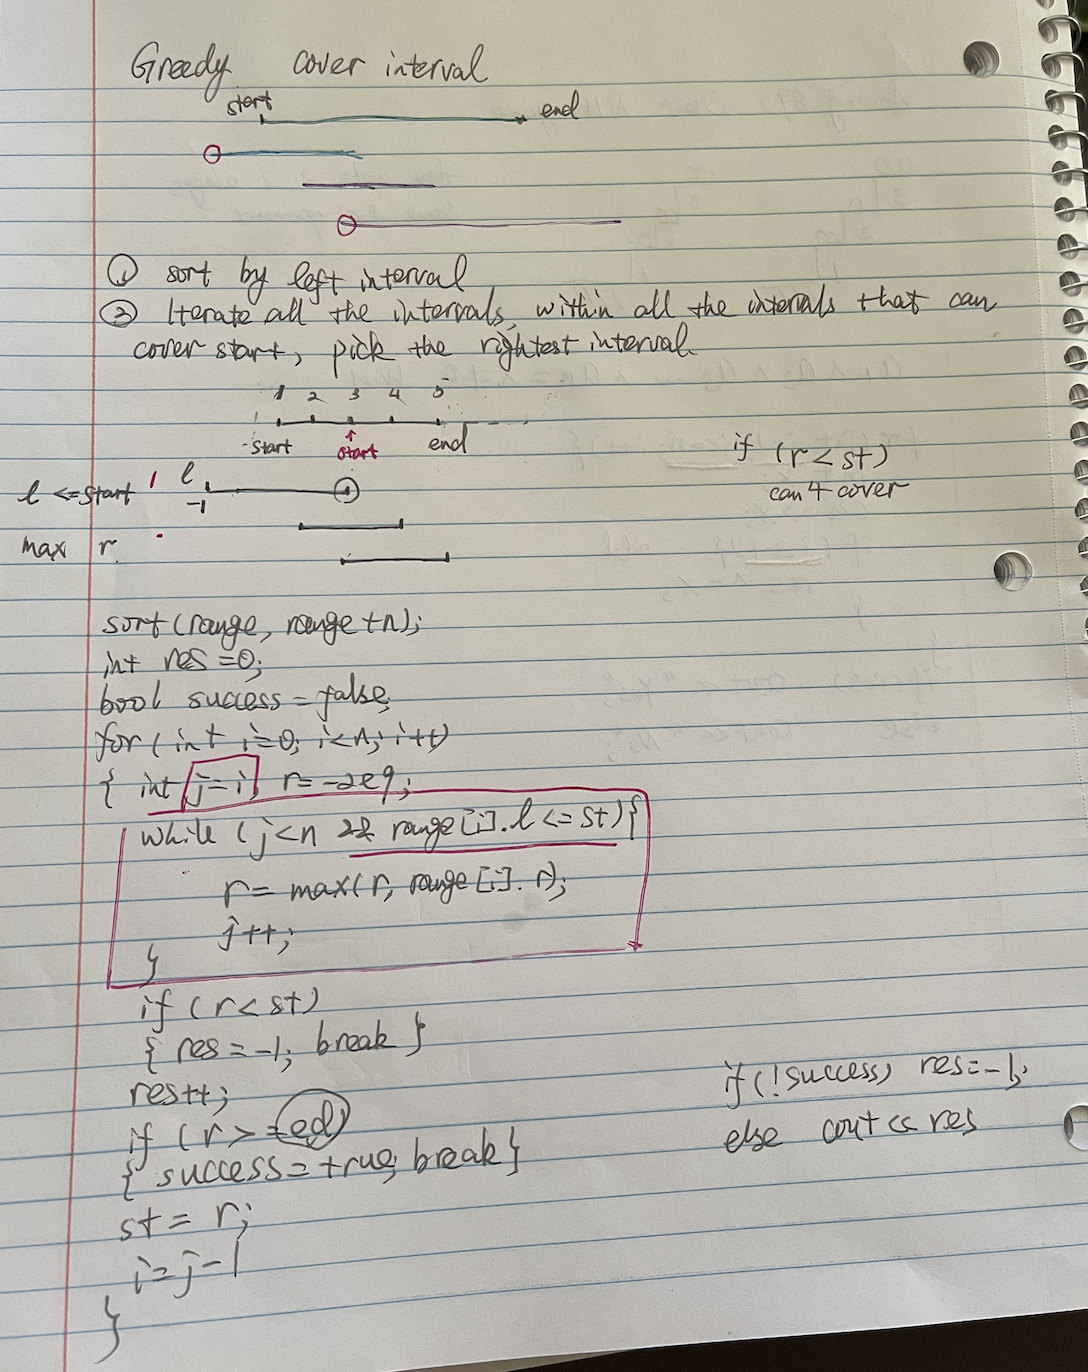 Greedy cover interval
start end
① sort by left interval
② Iterate all the intervals, within all the intervals that can
cover start, pick the rightest interval
1 2 3 4 5
start start end
if (r < st)
can't cover
l <= start l
-1
max r
sort(range, range+n);
int res = 0;
bool success = false;
for (int i=0; i<n; i++)
{ int j=i, r= -2e9;
while (j<n && range[i].l <= st){
r = max(r, range[i].r);
j++;
}
if (r < st)
{ res = -1; break }
res++;
if (r >= ed)
{ success = true; break }
st = r;
i = j-1
}
if (!success) res = -1;
else cout << res